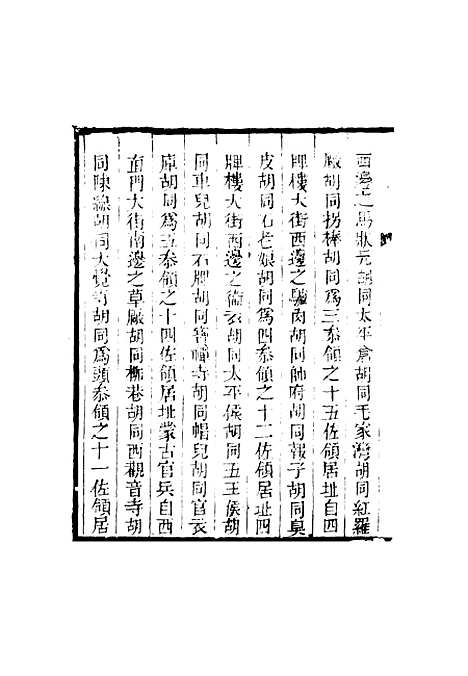 西邊之馬狀元胡同太平倉胡同毛家灣胡同紅羅
廠胡同拐棒胡同爲三叅領之十五佐領居址自四
牌樓大街西邊之驢肉胡同帥府胡同報子胡同臭
皮胡同石老娘胡同爲四叅領之十二佐領居址四
牌樓大街西邊之衞衣胡同太平侯胡同五王侯胡
同車兒胡同石牌胡同寶禪寺胡同帽兒胡同官衣
庫胡同爲五叅領之十四佐領居址蒙古官兵自西
直門大街南邊之草廠胡同柳巷胡同西觀音寺胡
同陳線胡同大覺寺胡同爲頭叅領之十一佐領居